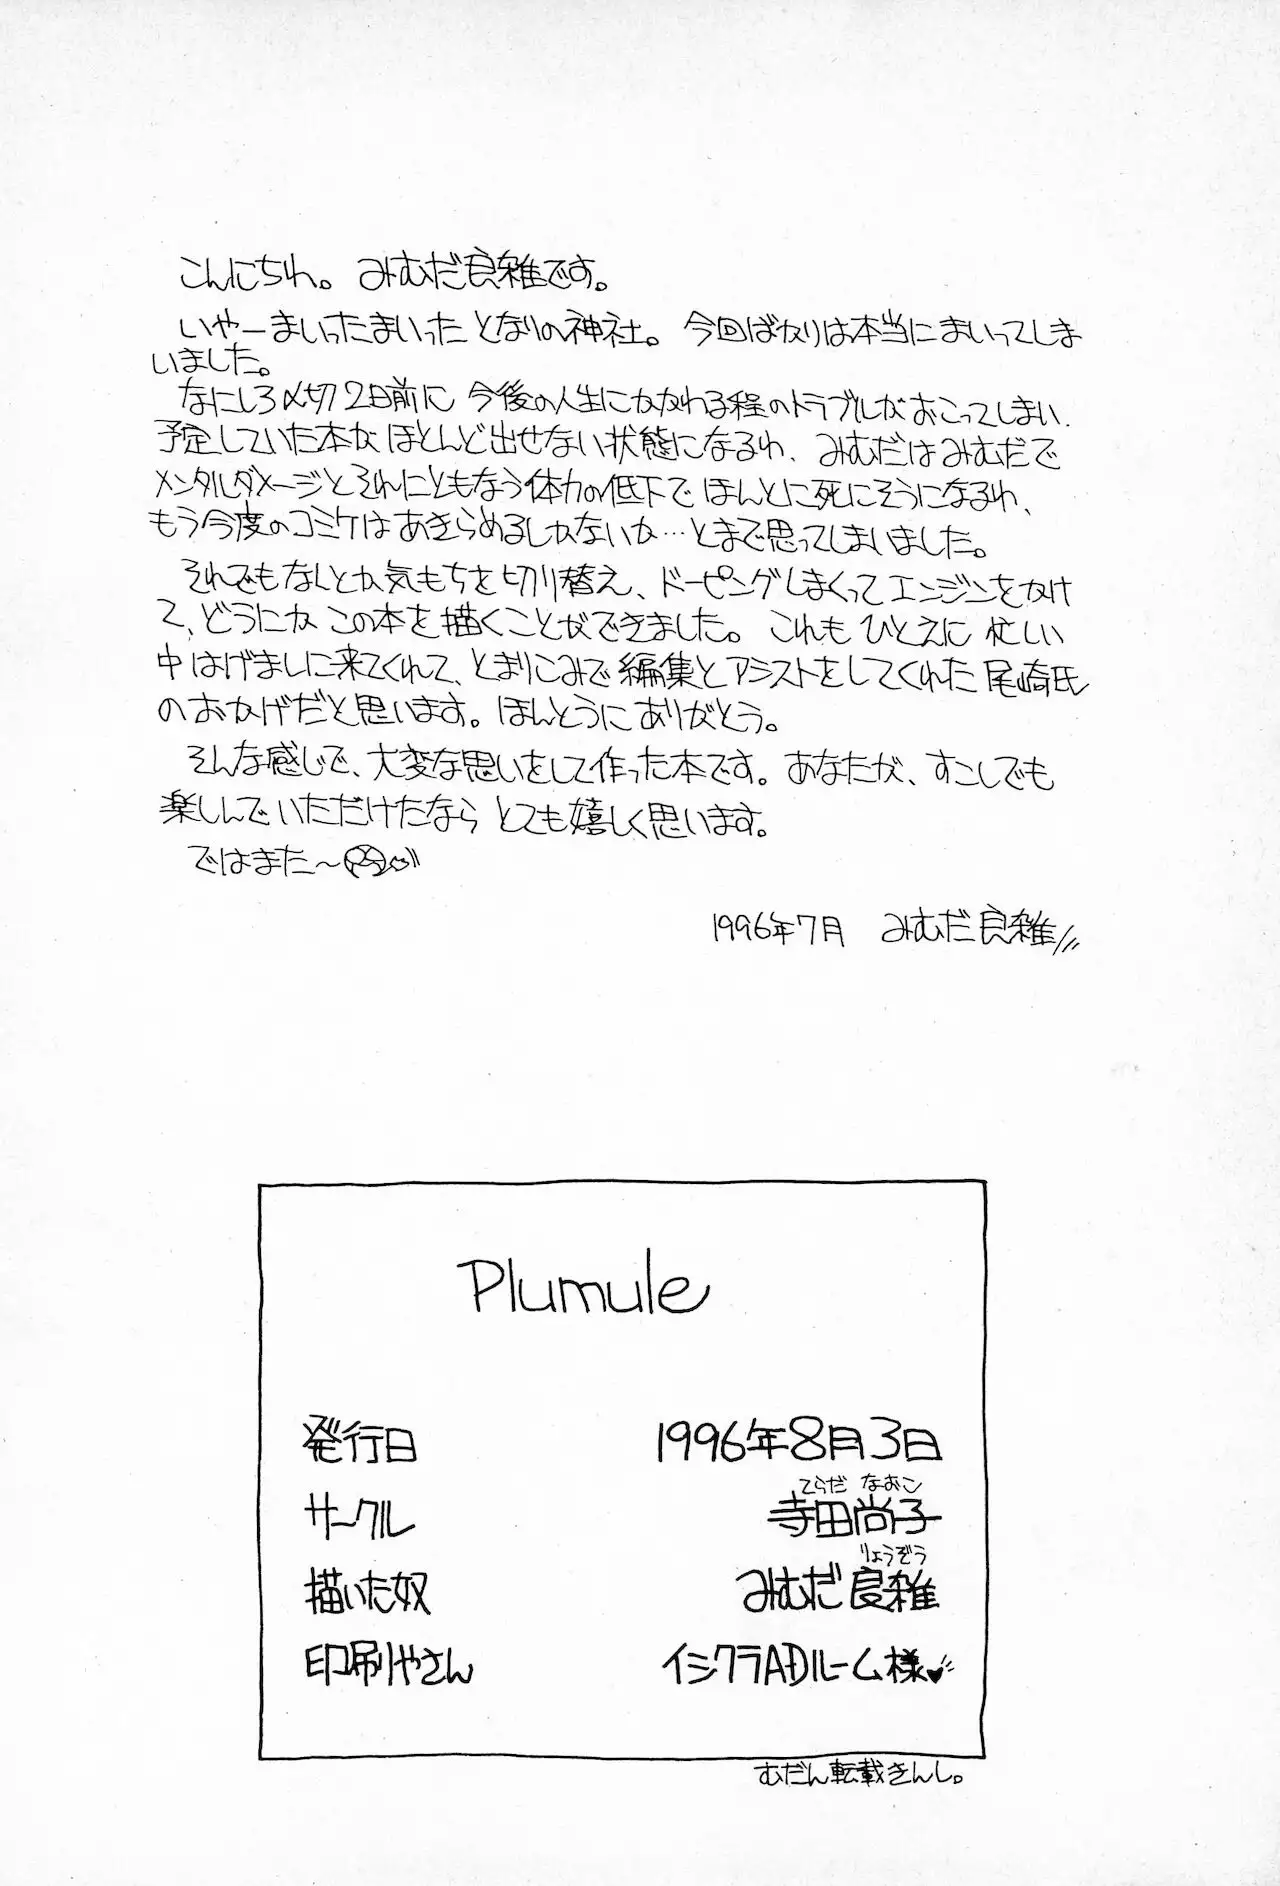 こんにちわ。 みむだ良雑です。
いやーまいったまいったとなりの神社。 今回ばかりは本当にまいってしま
いました。
なにしろ〆切2日前に 今後の人生にかかわる程のトラブルがおこってしまい、
予定していた本がほとんど出せない状態になるわ、みむだはみむだで
メンタルダメージとそれにともなう体力の低下でほんとに死にそうになるわ、
もう今度のコミケはあきらめるしかないか…とまで思ってしまいました。
それでもなんとか気もちを切り替え、ドーピングしまくってエンジンをかけ
て、どうにかこの本を描くことができました。これもひとえに 忙しい
中はげましに来てくれて、とまりこみで編集とアシストをしてくれた尾崎氏
のおかげだと思います。ほんとうにありがとう。
そんな感じで、大変な思いをして作った本です。あなたが、すこしでも
楽しんでいただけたなら とても嬉しく思います。
ではまた〜
1996年7月 みむだ良雑
Plumule
発行日 1996年8月3日
てらだ なおこ
サークル 寺田尚子
りょうぞう
描いた奴 みむだ良雑
印刷やさん イシクラADルーム様♥
むだん転載きんし。